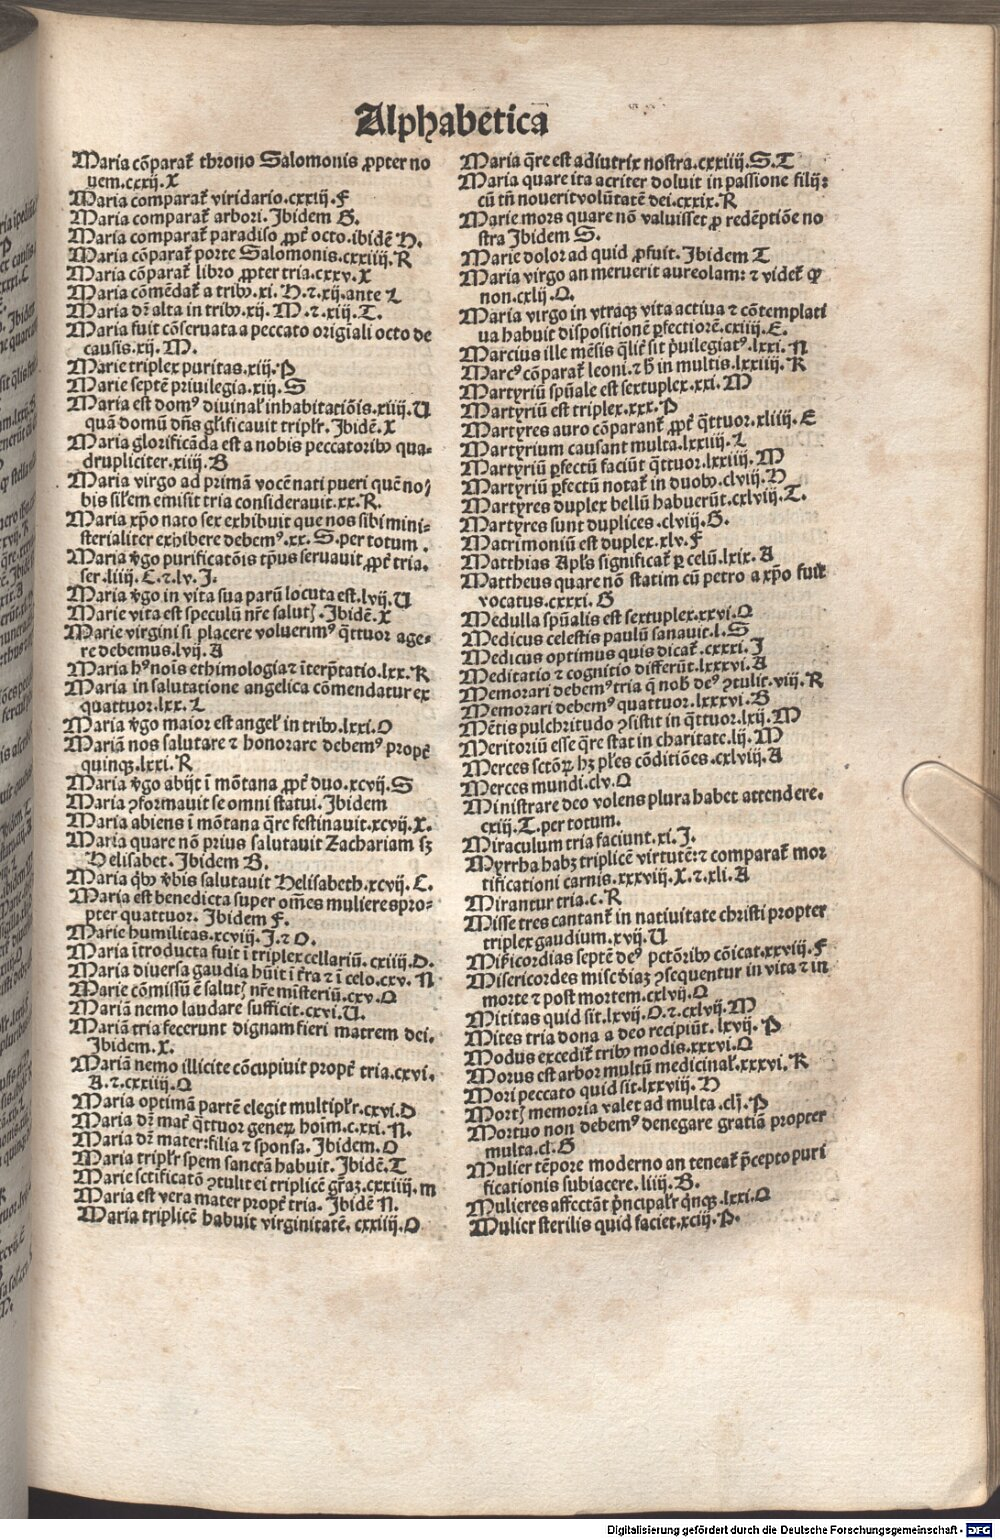 Alphabetica
Maria cōparat᷑ throno Salomonis ꝓpter no
uem.cxxij.X
Maria comparat᷑ viridario.cxxiij.F
Maria comparat᷑ arbori. Ibidem G.
Maria comparat᷑ paradiso ꝓpt᷑ octo.ibidē H.
Maria cōparat᷑ porte Salomonis.cxxiiij.R
Maria cōparat᷑ libro ꝓpter tria.cxxv.X
Maria cōmēdat᷑ a tribꝰ.xi. H.⁊.xij.ante L
Maria dr̄ alta in tribꝰ.xij. M.⁊.xiij.T.
Maria fuit cōseruata a peccato origiali octo de
causis.xij.M.
Marie triplex puritas.xiij.P
Marie septē priuilegia.xiij.S
Maria est domꝰ diuinal᷑ inhabitatiōis.xiiij.U
quā domū dn̄s gl̄ificauit tripl᷑r. Ibidē.X
Maria glorificāda est a nobis peccatoribꝰ qua-
drupliciter.xiiij.B
Maria virgo ad primā vocē nati pueri quē no/
bis sil᷑em emisit tria considerauit.xx.R.
Maria xp̄o nato sex exhibuit que nos sibi mini-
sterialiter exhibere debemꝰ.xx. S.per totum.
Maria v̄go purificatōis tp̄us seruauit ꝓpt᷑ tria.
ser.liiij.C.⁊.lv.J.
Maria v̄go in vita sua parū locuta est.lvij.U
Marie vita est speculū nr̄e salutꝭ. Ibidē.X
Marie virgini si placere voluerimꝰ q̄ttuor age-
re debemus.lvij.A
Maria hꝰ noīs ethimologia ⁊ īterp̄tatio.lxx.K
Maria in salutatione angelica cōmendatur ex
quattuor.lxx.L
Maria v̄go maior est angel᷑ in tribꝰ.lxxi.O
Mariā nos salutare ⁊ honorare debemꝰ propt᷑
quinqꝫ.lxxi.R
Maria v̄go abijt ī mōtana ꝓpt᷑ duo.xcvij.S
Maria ꝯformauit se omni statui. Ibidem
Maria abiens ī mōtana q̄re festinauit.xcvij.X.
Maria quare nō prius salutauit Zachariam sꝫ
Helisabet. Ibidem B.
Maria qͥbꝰ v̄bis salutauit Helisabeth.xcvij. C.
Maria est benedicta super om̄es mulieres pro-
pter quattuor. Ibidem F.
Marie humilitas.xcviij.J.⁊ O.
Maria ītroducta fuit ī triplex cellariū. cxiiij.D.
Maria diuersa gaudia hūit ī t̄ra ⁊ ī celo.cxv. N
Marie cōmissū ē salutꝭ nr̄e mīsteriū.cxv.Q
Mariā nemo laudare sufficit.cxvi.U.
Mariā tria fecerunt dignam fieri matrem dei.
Ibidem.X.
Mariā nemo illicite cōcupiuit propt᷑ tria.cxvi.
A.⁊.cxxiiij.Q
Maria optimā partē elegit multipl᷑r.cxvi.D
Maria dr̄ mat᷑ q̄ttuor generꝫ hoīm.c.xxi.N.
Maria dr̄ mater:filia ⁊ sponsa. Ibidem.O
Maria tripl᷑r spem sanctā habuit. Ibidē.T
Marie sctificatō ꝯtulit ei triplicē gr̄aꝫ.cxxiiij.m
Maria est vera mater propt᷑ tria. Ibidē N.
Maria triplicē habuit virginitatē. cxxiiij.O
Maria q̄re est adiutrix nostra.cxxiiij.S.T
Maria quare ita acriter doluit in passione filij:
cū tn̄ nouerit volūtatē dei.cxxix.R
Marie mors quare nō valuisset ꝓ redēptiōe no
stra Ibidem S.
Marie dolor ad quid ꝓfuit. Ibidem T
Maria virgo an meruerit aureolam: ⁊ videt᷑ ꝙ
non.cxlij.O.
Maria virgo in vtraqꝫ vita actiua ⁊ cōtemplati
ua habuit dispositionē ꝑfectiorē.cxiiij.E.
Marcius ille mēsis q̄lit᷑ sit p̄uilegiatꝰ.lxxi.N
Marcꝰ cōparat᷑ leoni.⁊ h̄ in multis.lxxiiij.R
Martyriū spūale est sextuplex.xxi.M
Martyriū est triplex.xxx.P
Martyres auro cōparant᷑ ꝓpt᷑ q̄ttuor.xliiij.E
Martyrium causant multa.lxxiiij.L
Martyriū ꝑfectū faciūt q̄ttuor.lxxiiij.M
Martyriū ꝑfectū notat᷑ in duobꝰ.clviij.H
Martyres duplex bellū habuerūt.cxlviij.T.
Martyres sunt duplices.clviij.G.
Matrimoniū est duplex.xlv.F
Matthias Apl̄s significat᷑ ꝑ celū.lxix.A
Mattheus quare nō statim cū petro a xp̄o fuit
vocatus.cxxxi.G
Medulla spūalis est sextuplex.xxvi.Q
Medicus celestis paulū sanauit.l.S
Medicus optimus quis dicat᷑.cxxxi.J
Meditatio ⁊ cognitio differūt.lxxxvi.A
Memorari debemꝰ tria q̄ nob̄ deꝰ ꝯtulit.viij.R
Memorari debemꝰ quattuor.lxxxvi.B
Mētis pulchritudo ꝯsistit in q̄ttuor.lxij.M
Meritoriū esse q̄re stat in charitate.lij.M
Merces sctōꝝ hꝫ pl̄es cōditiōes.cxlviij.A
Merces mundi.clv.Q
Ministrare deo volens plura habet attendere.
cxiij.T.per totum.
Miraculum tria faciunt.xi.J.
Myrrha habꝫ triplicē virtutē:⁊ comparat᷑ mor
tificationi carnis.xxxviij.X.⁊.xli.A
Mirantur tria.c.R
Misse tres cantant᷑ in natiuitate christi propter
triplex gaudium.xvij.U
Mis̄icordias septē deꝰ pctōribꝰ cōicat.xxviij.F
Misericordes misc̄diaꝫ ꝯsequentur in vita ⁊ in
morte ⁊ post mortem.cxlvij.Q
Mititas quid sit.lxvij.O.⁊.cxlvij.M
Mites tria dona a deo recipiūt.lxvij.P
Modus excedit᷑ tribꝰ modis.xxxvi.Q
Morus est arbor multū medicinal᷑.xxxvi.R
Mori peccato quid sit.lxxviij.H
Mortꝭ memoria valet ad multa.clj.P
Mortuo non debemꝰ denegare gratiā propter
multa.cl.G
Mulier tēpore moderno an teneat᷑ p̄cepto puri
ficationis subiacere.liiij.B.
Mulieres affectāt p̄ncipal᷑r qͥnqꝫ.lxxi.Q
Mulier sterilis quid faciet.xciij.P.
Digitalisierung gefördert durch die Deutsche Forschungsgemeinschaft - DFG